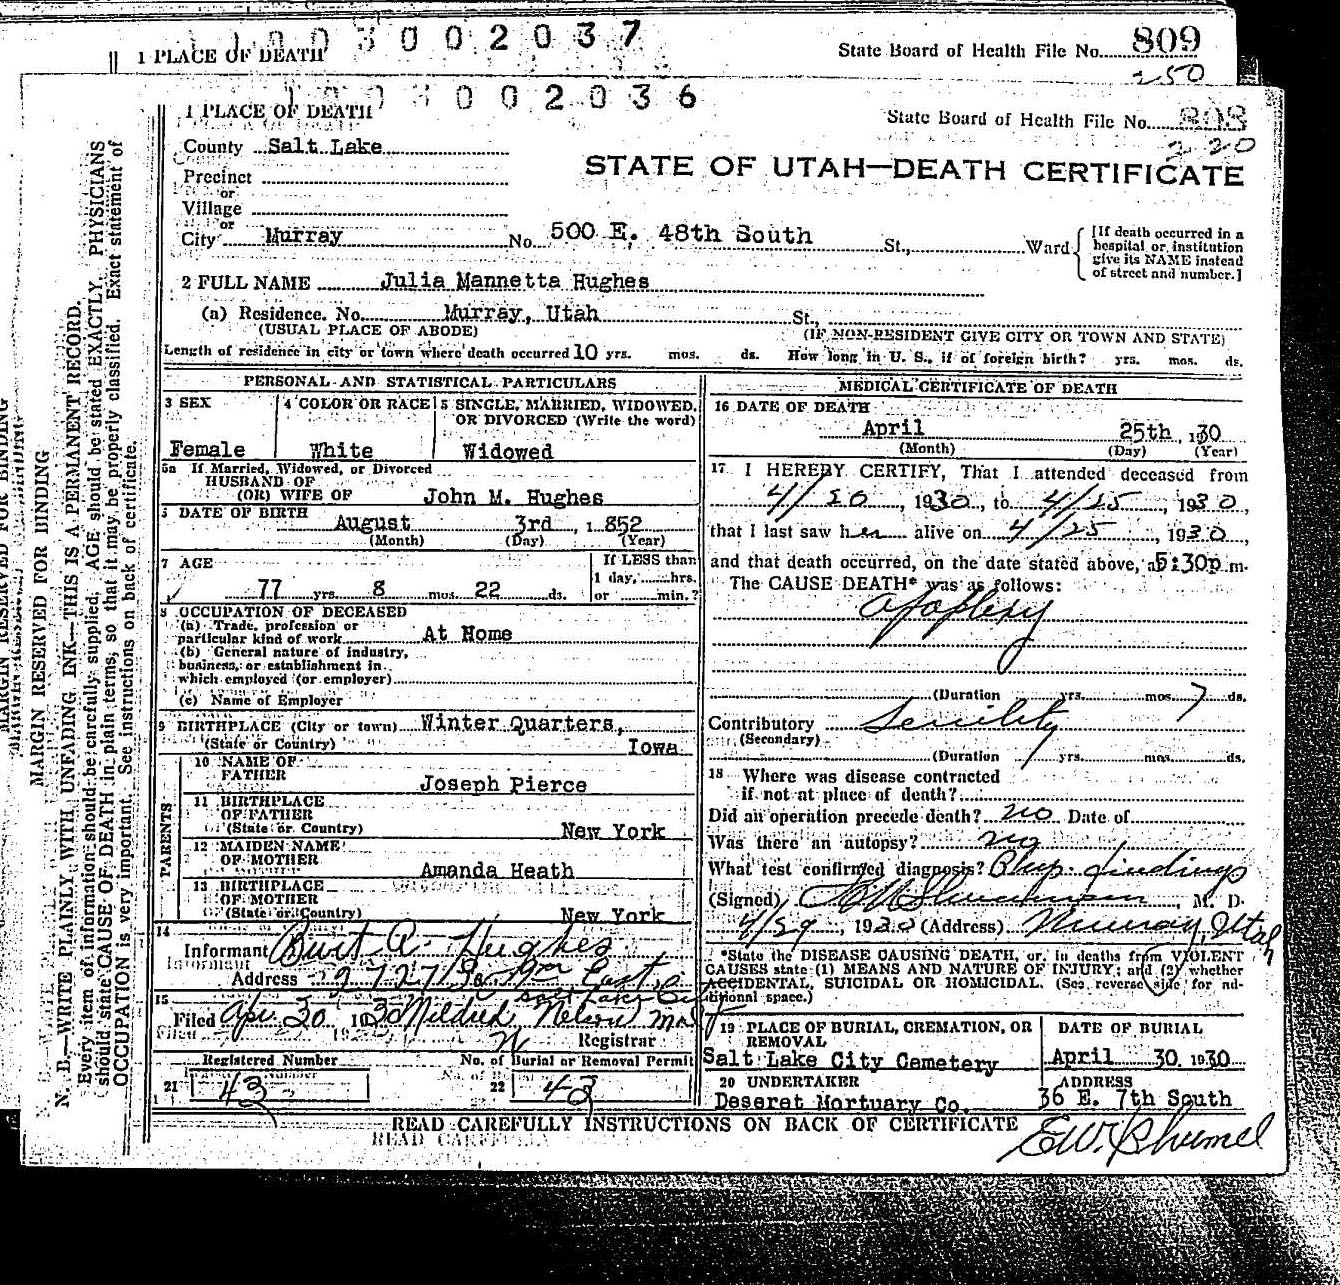 1003002037
1 PLACE OF DEATH
State Board of Health File No. 809
250
1003002036
1 PLACE OF DEATH
State Board of Health File No. 808
220
County Salt Lake
STATE OF UTAH—DEATH CERTIFICATE
Precinct
or
Village
or
City Murray No. 500 E. 48th South St., Ward
[If death occurred in a hospital or institution give its NAME instead of street and number.]
2 FULL NAME Julia Mannetta Hughes
(a) Residence. No. Murray, Utah St.,
(USUAL PLACE OF ABODE) (IF NON-RESIDENT GIVE CITY OR TOWN AND STATE)
Length of residence in city or town where death occurred 10 yrs. mos. ds. How long in U. S., if of foreign birth? yrs. mos. ds.
PERSONAL AND STATISTICAL PARTICULARS
3 SEX
Female
4 COLOR OR RACE
White
5 SINGLE, MARRIED, WIDOWED,
OR DIVORCED (Write the word)
Widowed
5a If Married, Widowed, or Divorced
HUSBAND OF
(OR) WIFE OF John M. Hughes
DATE OF BIRTH
August 3rd, 1852
(Month) (Day) (Year)
7 AGE
77 yrs. 8 mos. 22 ds.
If LESS than
1 day, hrs.
or min.?
8 OCCUPATION OF DECEASED
(a) Trade, profession or
particular kind of work At Home
(b) General nature of industry,
business, or establishment in
which employed (or employer)
(c) Name of Employer
9 BIRTHPLACE (City or town) Winter Quarters,
(State or Country) Iowa
PARENTS
10 NAME OF
FATHER Joseph Pierce
11 BIRTHPLACE
OF FATHER
(State or Country) New York
12 MAIDEN NAME
OF MOTHER Amanda Heath
13 BIRTHPLACE
OF MOTHER
(State or Country) New York
14
Informant Burt A. Hughes
Address 2727 So. 9th East
Salt Lake City
15
Filed Apr. 30 1930 Mildred Nelson
Registrar
Registered Number
21 43
No. of Burial or Removal Permit
22 43
MEDICAL CERTIFICATE OF DEATH
16 DATE OF DEATH
April 25th, 1930
(Month) (Day) (Year)
17 I HEREBY CERTIFY, That I attended deceased from
4/20, 1930, to 4/25, 1930,
that I last saw her alive on 4/25, 1930,
and that death occurred, on the date stated above, a 5:30p m.
The CAUSE DEATH* was as follows:
Apoplexy
(Duration yrs. mos. 7 ds.
Contributory Senility
(Secondary)
(Duration yrs. mos. ds.
18 Where was disease contracted
if not at place of death?
Did an operation precede death? no Date of
Was there an autopsy? no
What test confirmed diagnosis? Phys. findings
(Signed) M. D.
4/29, 1930 (Address) Murray, Utah
*State the DISEASE CAUSING DEATH, or, in deaths from VIOLENT
CAUSES state (1) MEANS AND NATURE OF INJURY; and (2) whether
ACCIDENTAL, SUICIDAL OR HOMICIDAL. (See reverse side for ad-
ditional space.)
19 PLACE OF BURIAL, CREMATION, OR
REMOVAL
Salt Lake City Cemetery
DATE OF BURIAL
April 30, 1930
20 UNDERTAKER
Deseret Mortuary Co.
ADDRESS
36 E. 7th South
READ CAREFULLY INSTRUCTIONS ON BACK OF CERTIFICATE
MARGIN RESERVED FOR BINDING
MARGIN RESERVED FOR BINDING
N. B.—WRITE PLAINLY WITH UNFADING INK—THIS IS A PERMANENT RECORD.
Every item of information should be carefully supplied. AGE should be stated EXACTLY. PHYSICIANS
should state CAUSE OF DEATH in plain terms, so that it may be properly classified. Exact statement of
OCCUPATION is very important. See instructions on back of certificate.